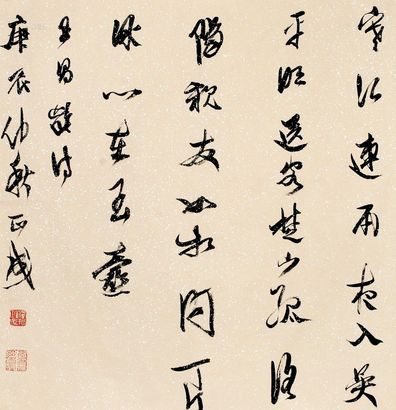 寒江連雨夜入吳
平明送客楚山孤洛
陽親友如相問一片
冰心在玉壺
王昌齡詩
庚辰仲秋正成